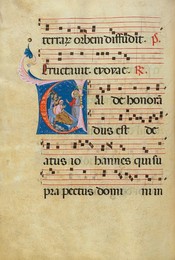 terrarum orbem diffudit. P.
Eructavit cor ac. R.
Val de honora
dus est de
atus io hannes qui su
pra pectus domi ni in